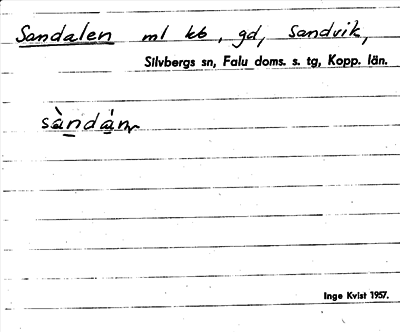 Sandalen ml kb, gd, Sandvik,
Silvbergs sn, Falu doms. s. tg, Kopp. län.
Inge Kvist 1957.